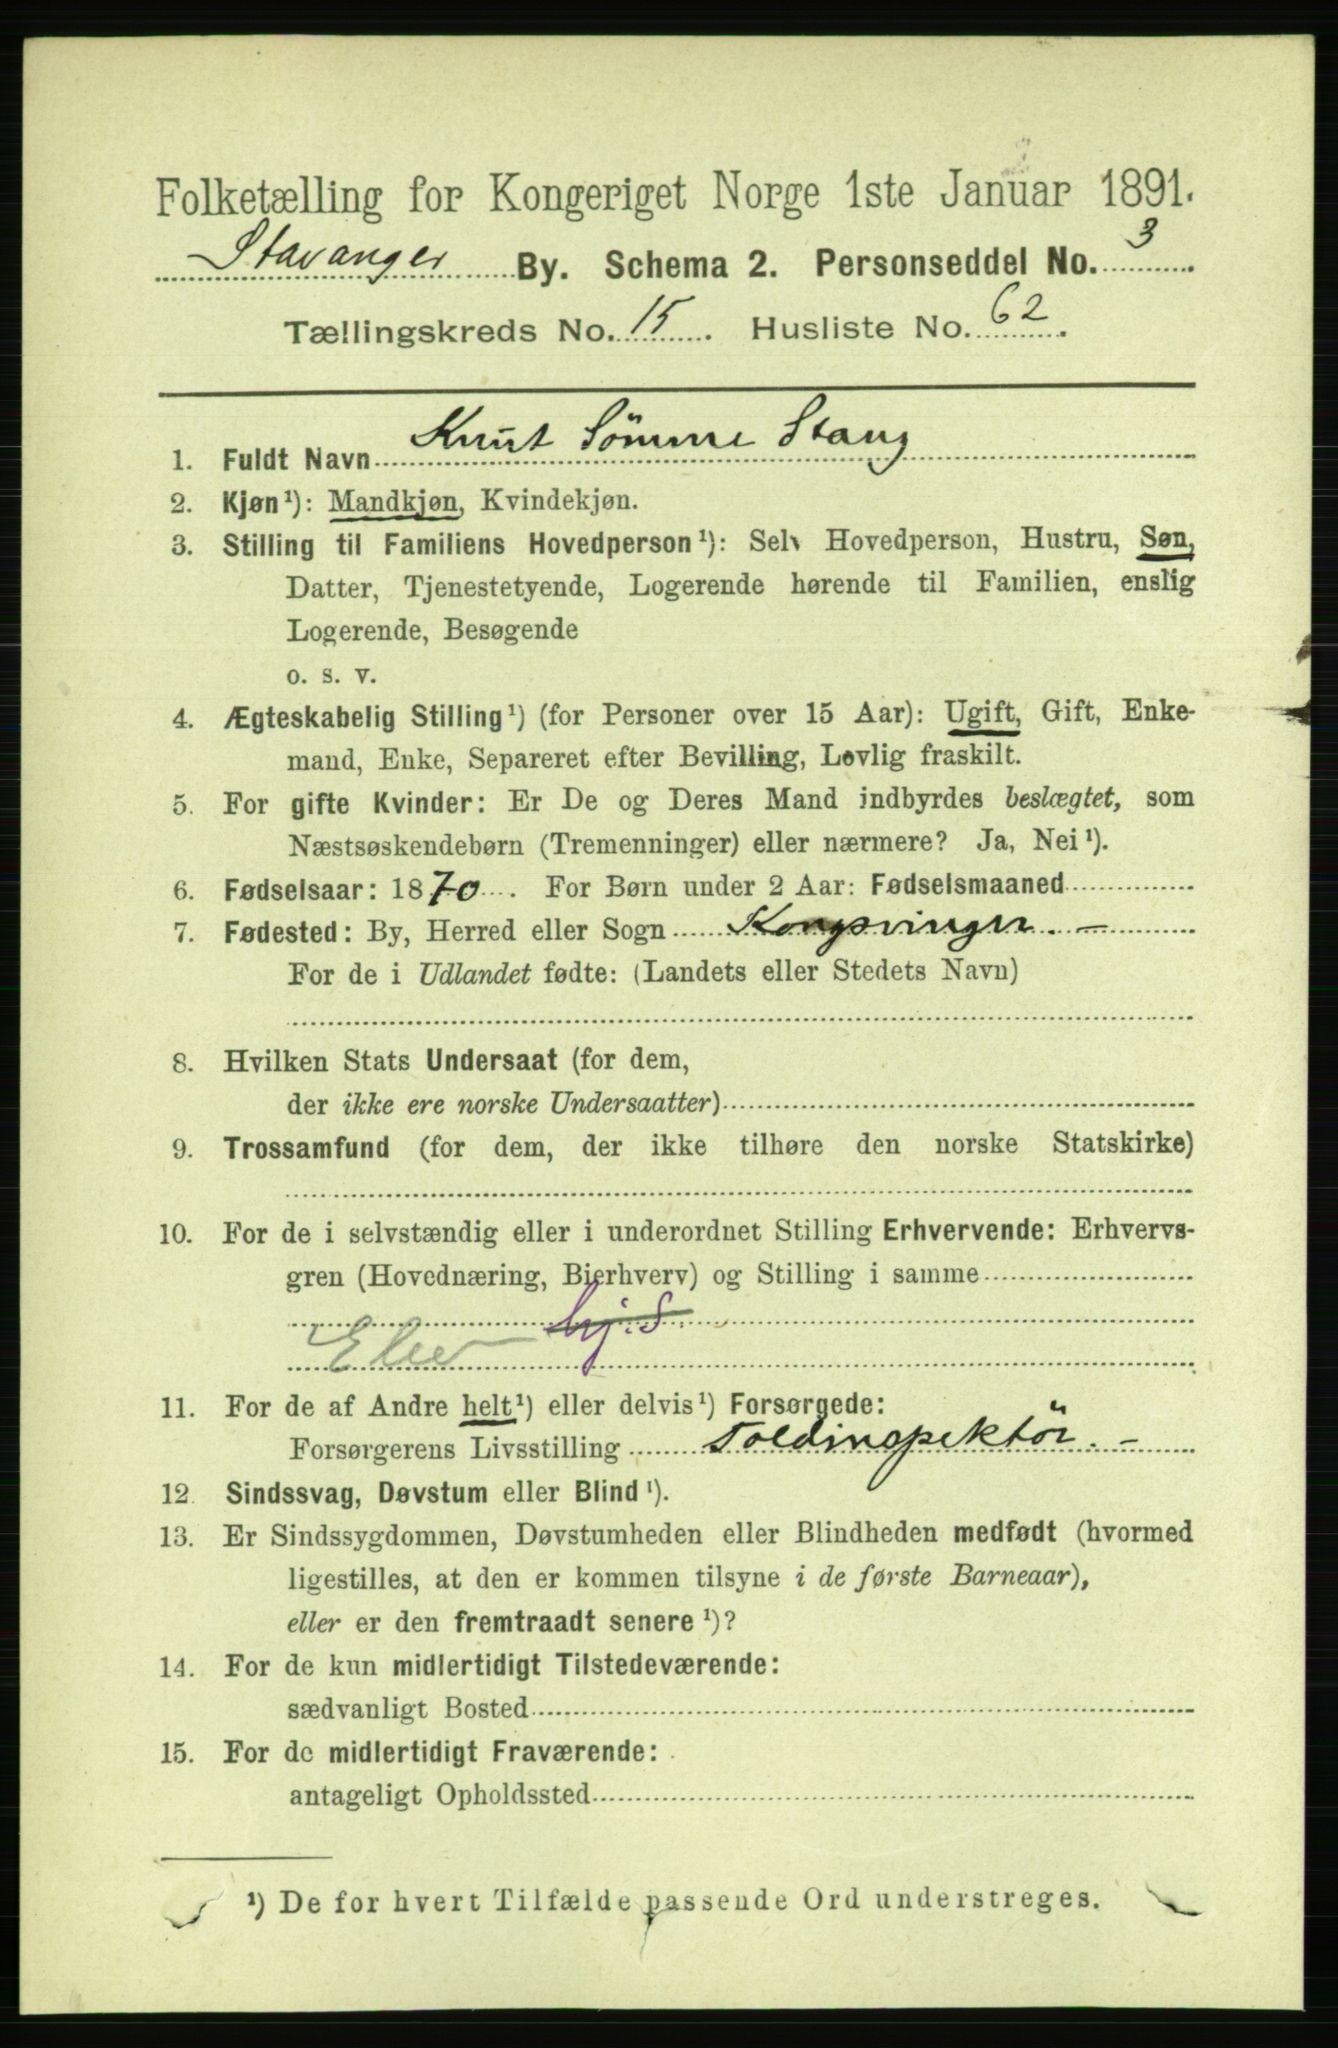 Folketælling for Kongeriget Norge 1ste Januar 1891.
Stavanger By. Schema 2. Personseddel No. 3
Tællingskreds No. 15. Husliste No. 62.
1. Fuldt Navn Knut Sömme Stang
2. Kjøn¹): Mandkjøn, Kvindekjøn.
3. Stilling til Familiens Hovedperson¹): Selv Hovedperson, Hustru, Søn,
Datter, Tjenestetyende, Logerende hørende til Familien, enslig
Logerende, Besøgende
o. s. v.
4. Ægteskabelig Stilling¹) (for Personer over 15 Aar): Ugift, Gift, Enke-
mand, Enke, Separeret efter Bevilling, Lovlig fraskilt.
5. For gifte Kvinder: Er De og Deres Mand indbyrdes beslægtet, som
Næstsøskendebørn (Tremenninger) eller nærmere? Ja, Nei¹).
6. Fødselsaar: 1870. For Børn under 2 Aar: Fødselsmaaned
7. Fødested: By, Herred eller Sogn Kongsvinger. -
For de i Udlandet fødte: (Landets eller Stedets Navn)
8. Hvilken Stats Undersaat (for dem,
der ikke ere norske Undersaatter)
9. Trossamfund (for dem, der ikke tilhøre den norske Statskirke)
10. For de i selvstændig eller i underordnet Stilling Erhvervende: Erhvervs-
gren (Hovednæring, Bierhverv) og Stilling i samme
hj. S.
Elev
11. For de af Andre helt¹) eller delvis¹) Forsørgede:
Forsørgerens Livsstilling Toldinspektör. -
12. Sindssvag, Døvstum eller Blind¹).
13. Er Sindssygdommen, Døvstumheden eller Blindheden medfødt (hvormed
ligestilles, at den er kommen tilsyne i de første Barneaar),
eller er den fremtraadt senere¹)?
14. For de kun midlertidigt Tilstedeværende:
sædvanligt Bosted
15. For de midlertidigt Fraværende:
antageligt Opholdssted
¹) De for hvert Tilfælde passende Ord understreges.